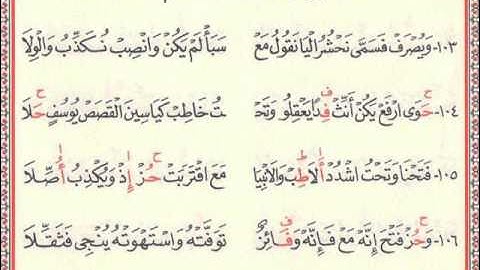 ١٠٣- وَيُصْرَفْ فَسَمَّى نَحْشُرُ الْيَا نَقُولُ مَعْ سَبَأْ لَمْ يَكُنْ وَانْصِبْ نُكَذِّبُ وَالْوِلَا
١٠٤- حَوَى ارْفَعْ يَكُنْ أَنِّثْ فِدًا يَعْقِلُو وَتَحْـ ـتُ خَاطِبْ كَيَاسِينَ الْقَصَصْ يُوسُفٍ حَلَا
١٠٥- فَتَحْنَا وَتَحْتُ اشْدُدْ أَلَا طِبْ وَالْانْبِيَا مَعَ اقْتَرَبَتْ حُزْ إِذْ وَيُكْذِبُ أُصِّلَا
١٠٦- وَحُزْ فَتْحَ إِنَّهُ مَعْ فَإِنَّهُ وَفَائِزٌ تَوَفَّتْهُ وَاسْتَهْوَتْهُ يُنْجِي فَثَقِّلَا